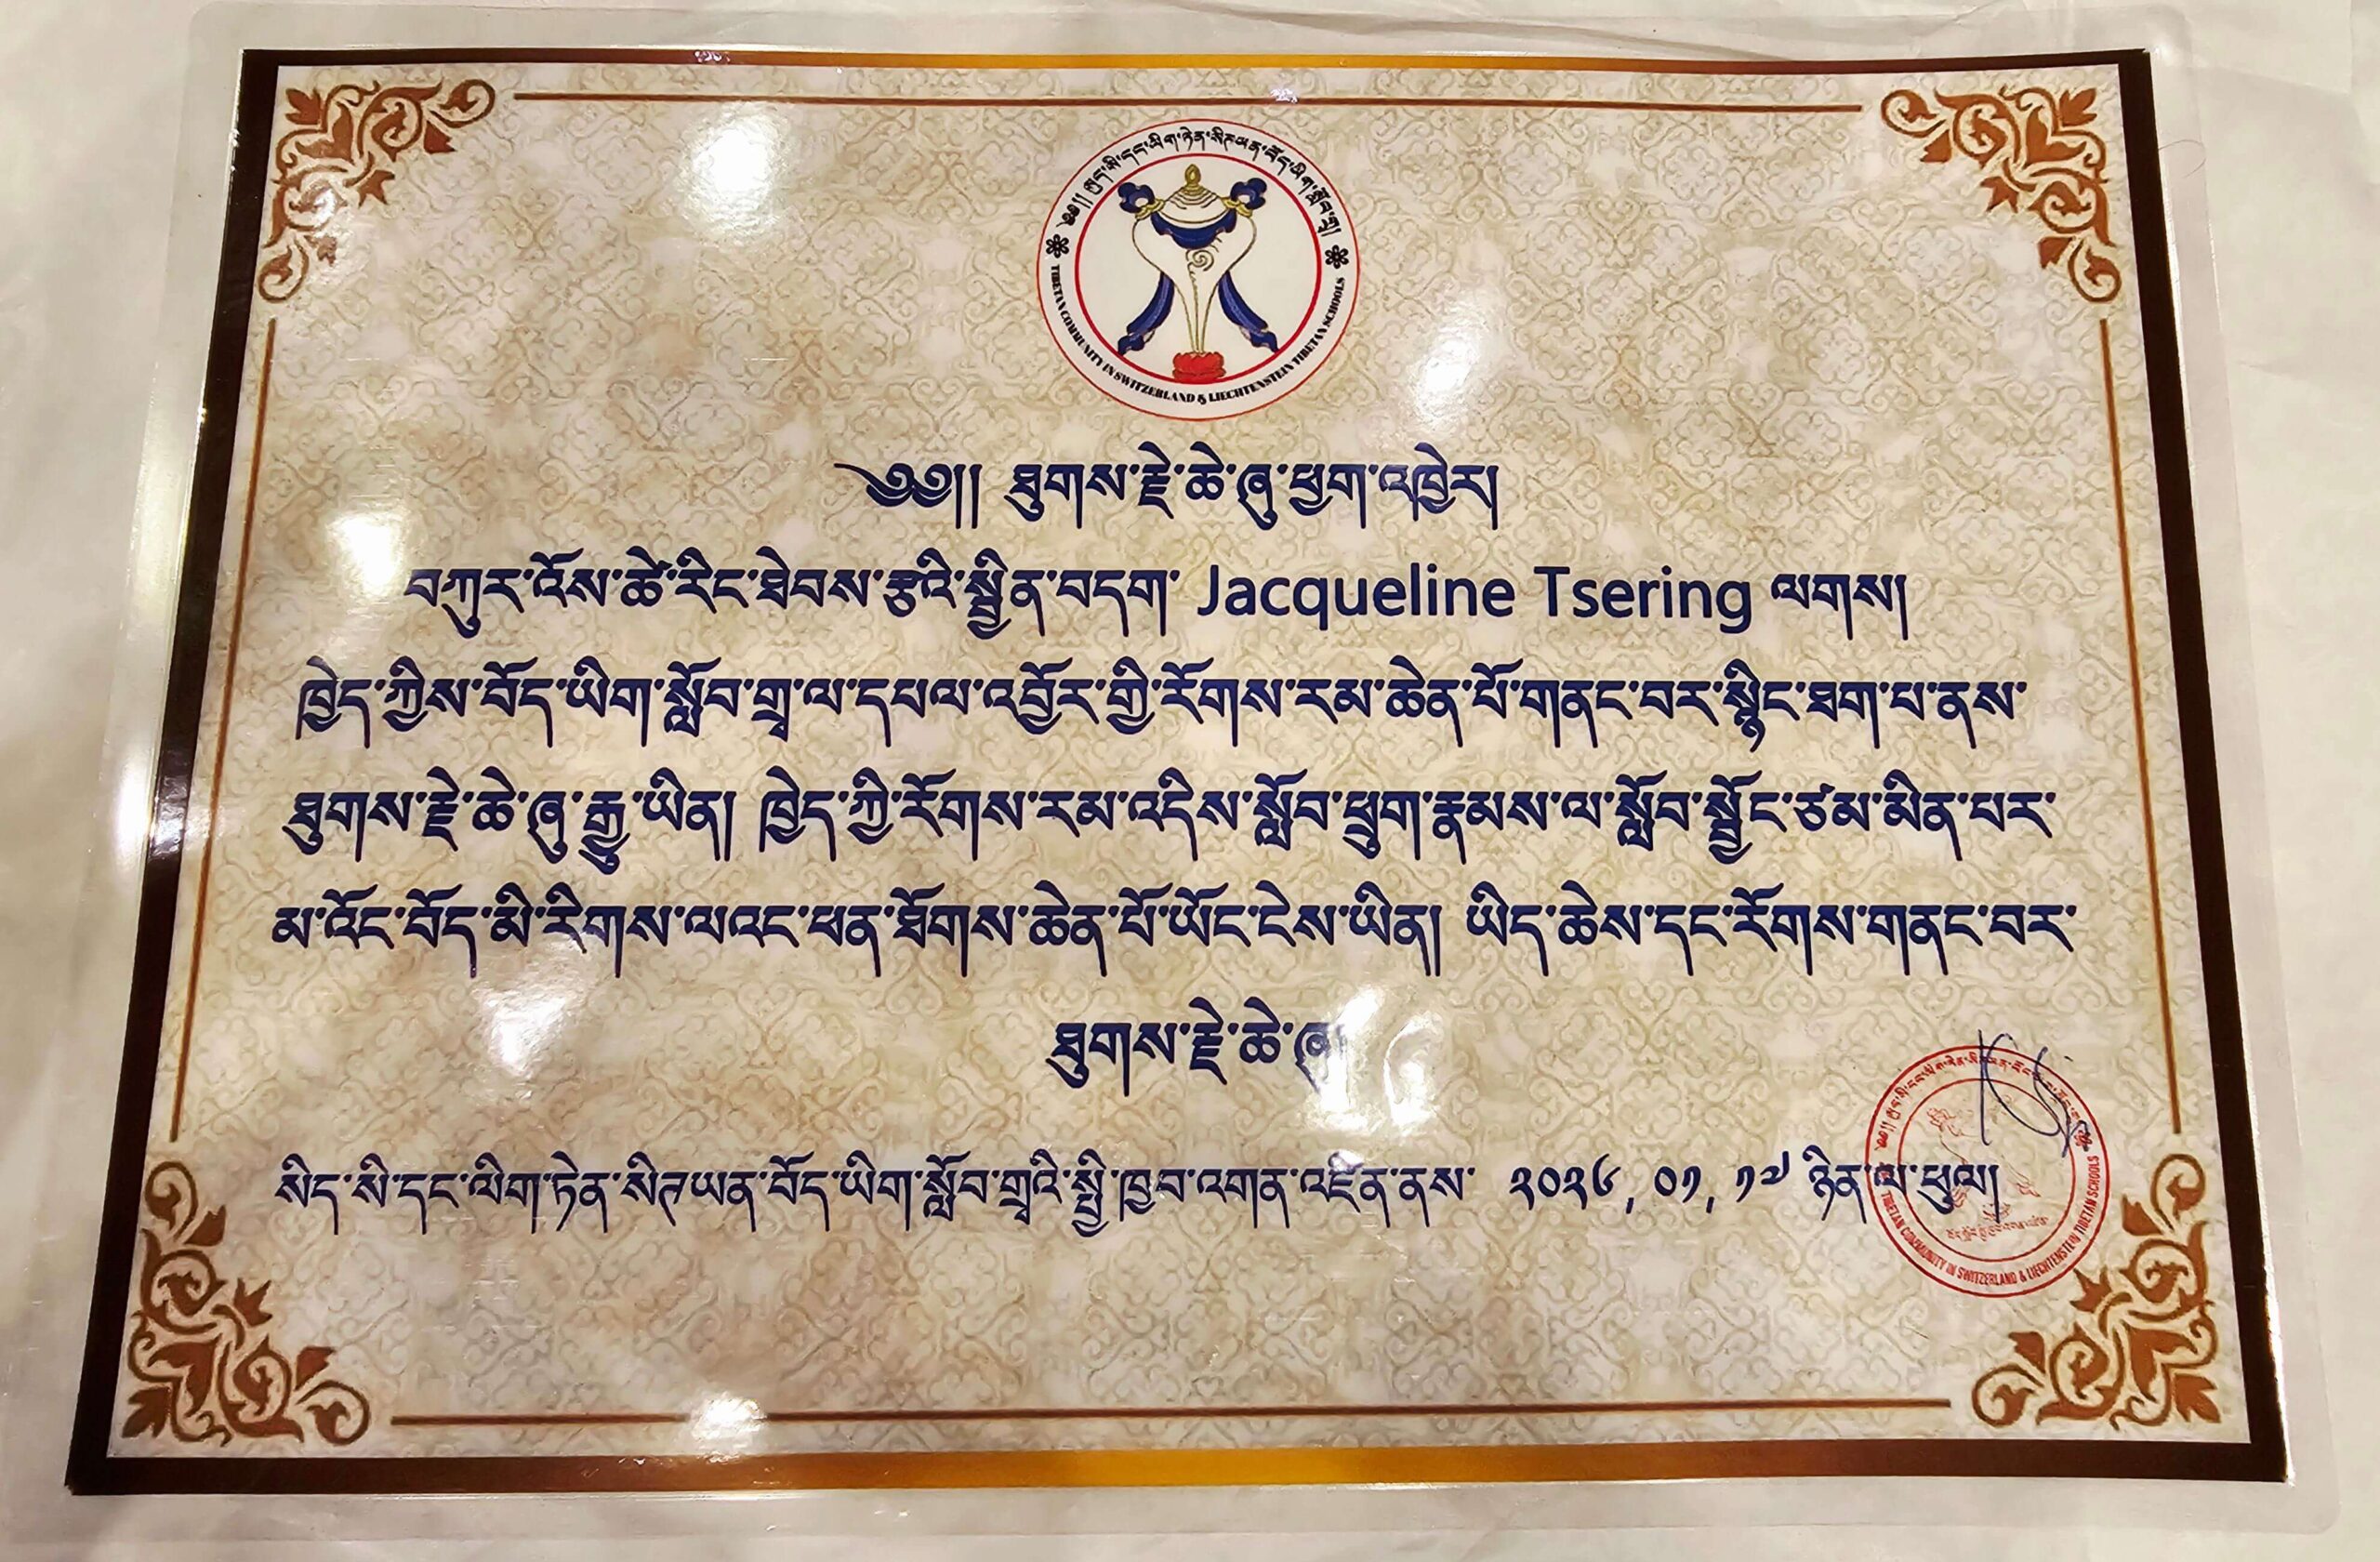 ༄༅།། ཁྱད་སི་དང་ལིག་ཏེན་སིཊཡན་བོད་ཡིག་སློབ་གྲྭ།
TIBETAN COMMUNITY IN SWITZERLAND & LIECHTENSTEIN TIBETAN SCHOOLS
༄༅།། ཐུགས་རྗེ་ཆེ་ཞུ་ཕྱག་འཁྱེར།
བཀུར་འོས་ཚེ་རིང་ཐེབས་རྩའི་སྦྱིན་བདག་ Jacqueline Tsering ལགས།
ཁྱེད་ཀྱིས་བོད་ཡིག་སློབ་གྲྭ་ལ་དཔལ་འབྱོར་གྱི་རོགས་རམ་ཆེན་པོ་གནང་བར་སྙིང་ཐག་པ་ནས་
ཐུགས་རྗེ་ཆེ་ཞུ་རྒྱུ་ཡིན། ཁྱེད་ཀྱི་རོགས་རམ་འདིས་སློབ་ཕྲུག་རྣམས་ལ་སློབ་སྦྱོང་ཙམ་མིན་པར་
མ་འོང་བོད་མི་རིགས་ལའང་ཕན་ཐོགས་ཆེན་པོ་ཡོང་ངེས་ཡིན། ཡིད་ཆེས་དང་རོགས་གནང་བར་
ཐུགས་རྗེ་ཆེ་ཞུ།
སིད་སི་དང་ལིག་ཏེན་སིཊཡན་བོད་ཡིག་སློབ་གྲྭའི་སྤྱི་ཁྱབ་འགན་འཛིན་ནས་ ༢༠༢༦, ༠༡, ༡༧ ཉིན་ལ་ཕུལ།
TIBETAN COMMUNITY IN SWITZERLAND & LIECHTENSTEIN TIBETAN SCHOOLS